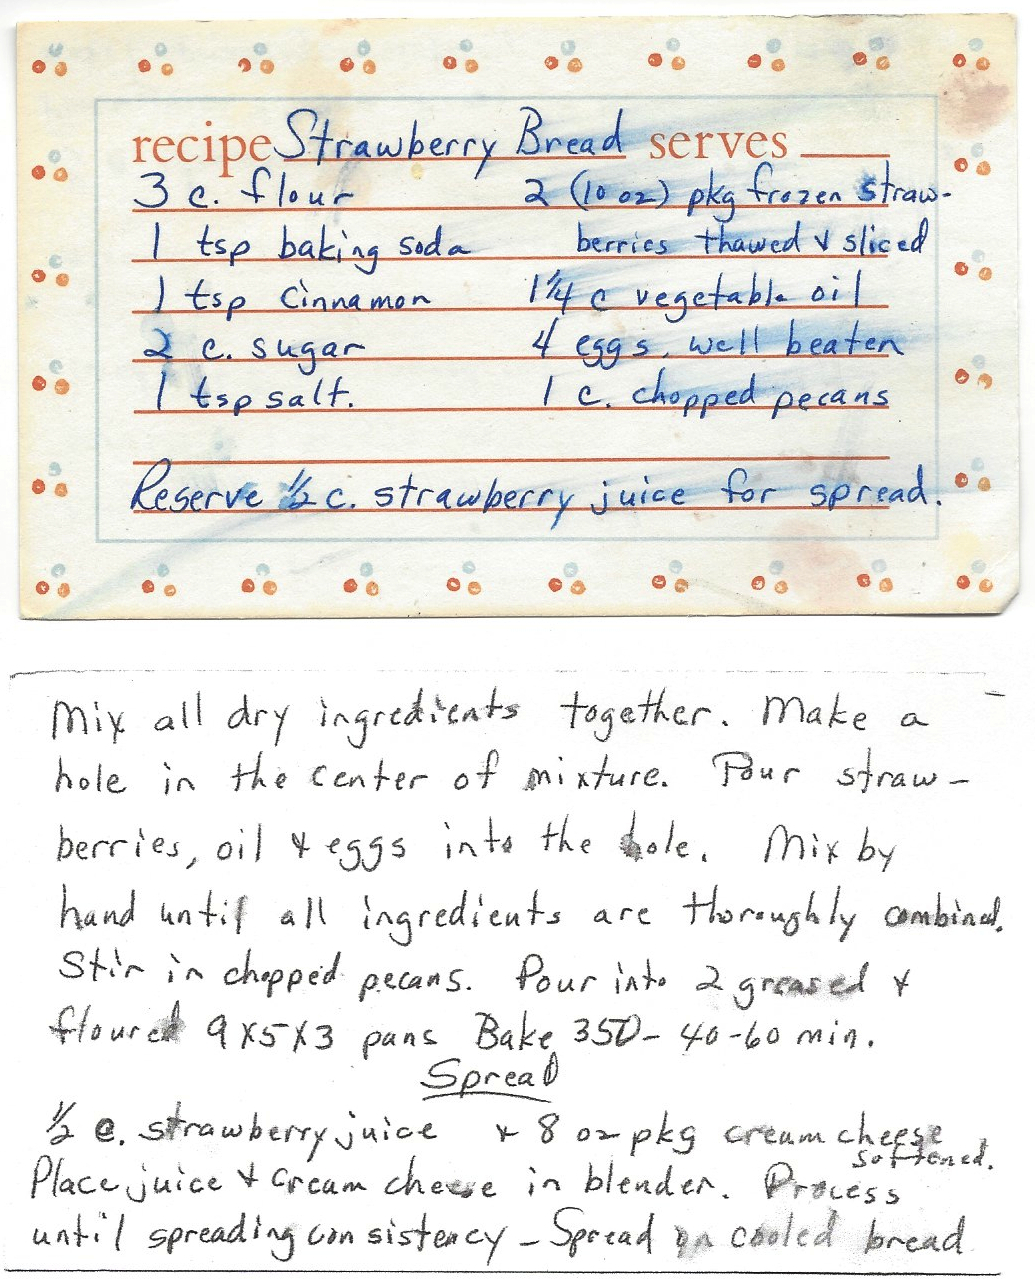 recipe Strawberry Bread serves
3 c. flour 2 (10 oz) pkg frozen straw-
1 tsp baking soda berries thawed & sliced
1 tsp cinnamon 1 1/4 c vegetable oil
2 c. sugar 4 eggs, well beaten
1 tsp salt. 1 c. chopped pecans
Reserve 1/2 c. strawberry juice for spread.
Mix all dry ingredients together. Make a
hole in the center of mixture. Pour straw-
berries, oil & eggs into the hole. Mix by
hand until all ingredients are thoroughly combined.
Stir in chopped pecans. Pour into 2 greased &
floured 9x5x3 pans Bake 350- 40-60 min.
Spread
1/2 c. strawberry juice & 8 oz pkg cream cheese
softened.
Place juice & cream cheese in blender. Process
until spreading consistency - Spread on cooled bread